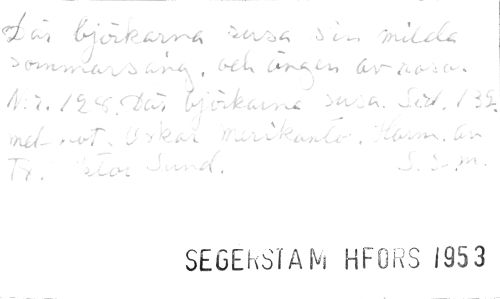 Där björkarna susa sin milda
sommarsång, och ängen av rosor
N:r. 128. Där björkarna susa. Sid. 132.
mel. not. Oskar Merikanto. Harm. av
Tx. Sund. S. S. m.
SEGERSTAM HFORS 1953